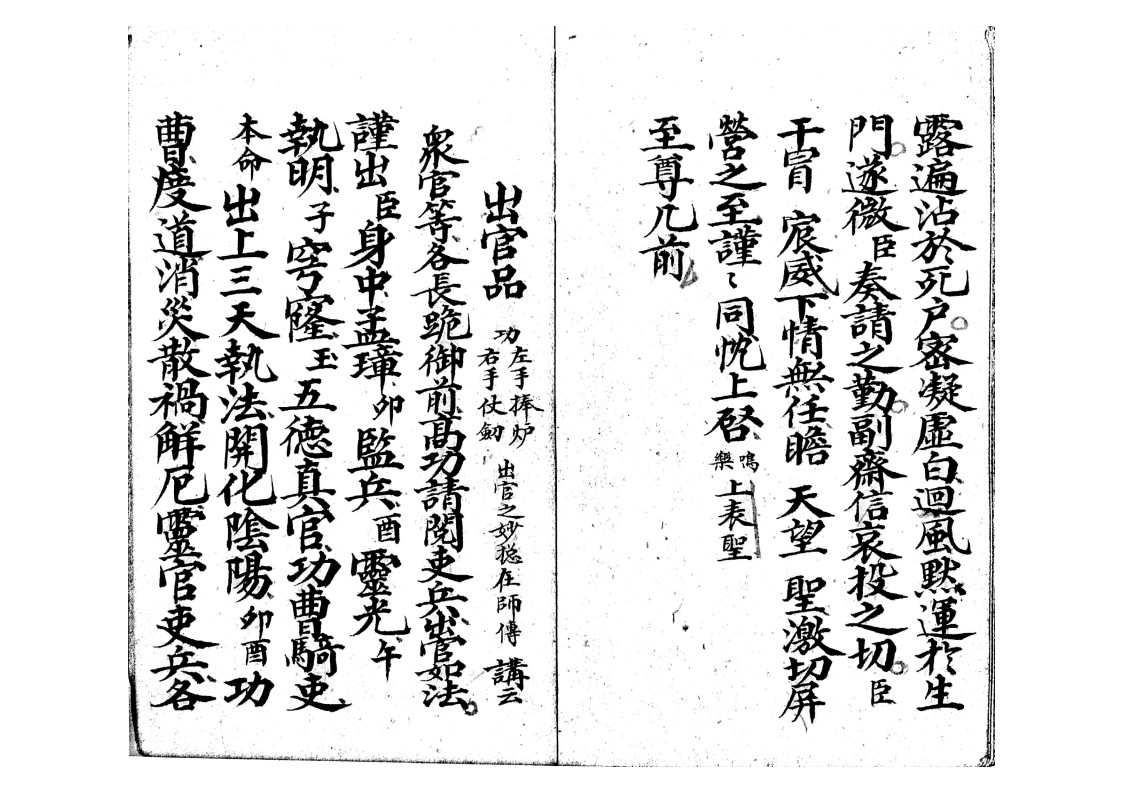 露遍沾於死户密凝虛白迴風默運於生
門遂微臣奏請之勤副齋信哀投之切臣
干冒 宸威下情無任瞻 天望 聖激切屏
營之至謹〻同忱上啓鳴樂上表聖
至尊几前
出官品 功左手捧炉右手仗劒 出官之妙稳在師傳 講云
衆官等各長跪御前高功請閱吏兵出官如法
謹出臣身中孟璋卯監兵酉靈光午
執明子穹窿玉五德真官功曹騎吏
本命出上三天執法開化陰陽卯酉功
曹度道消災散禍觧厄靈官吏兵各